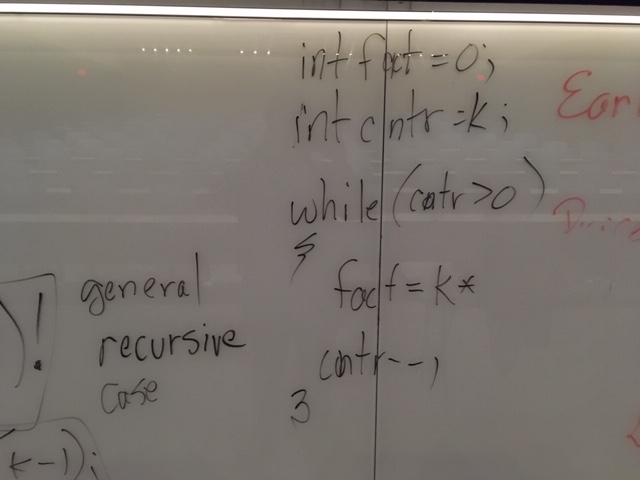 int fact = 0;
int cntr = k;
while (cntr > 0)
{
fact = k *
cntr--;
}
)!
general
recursive
case
(k-1);
Ear